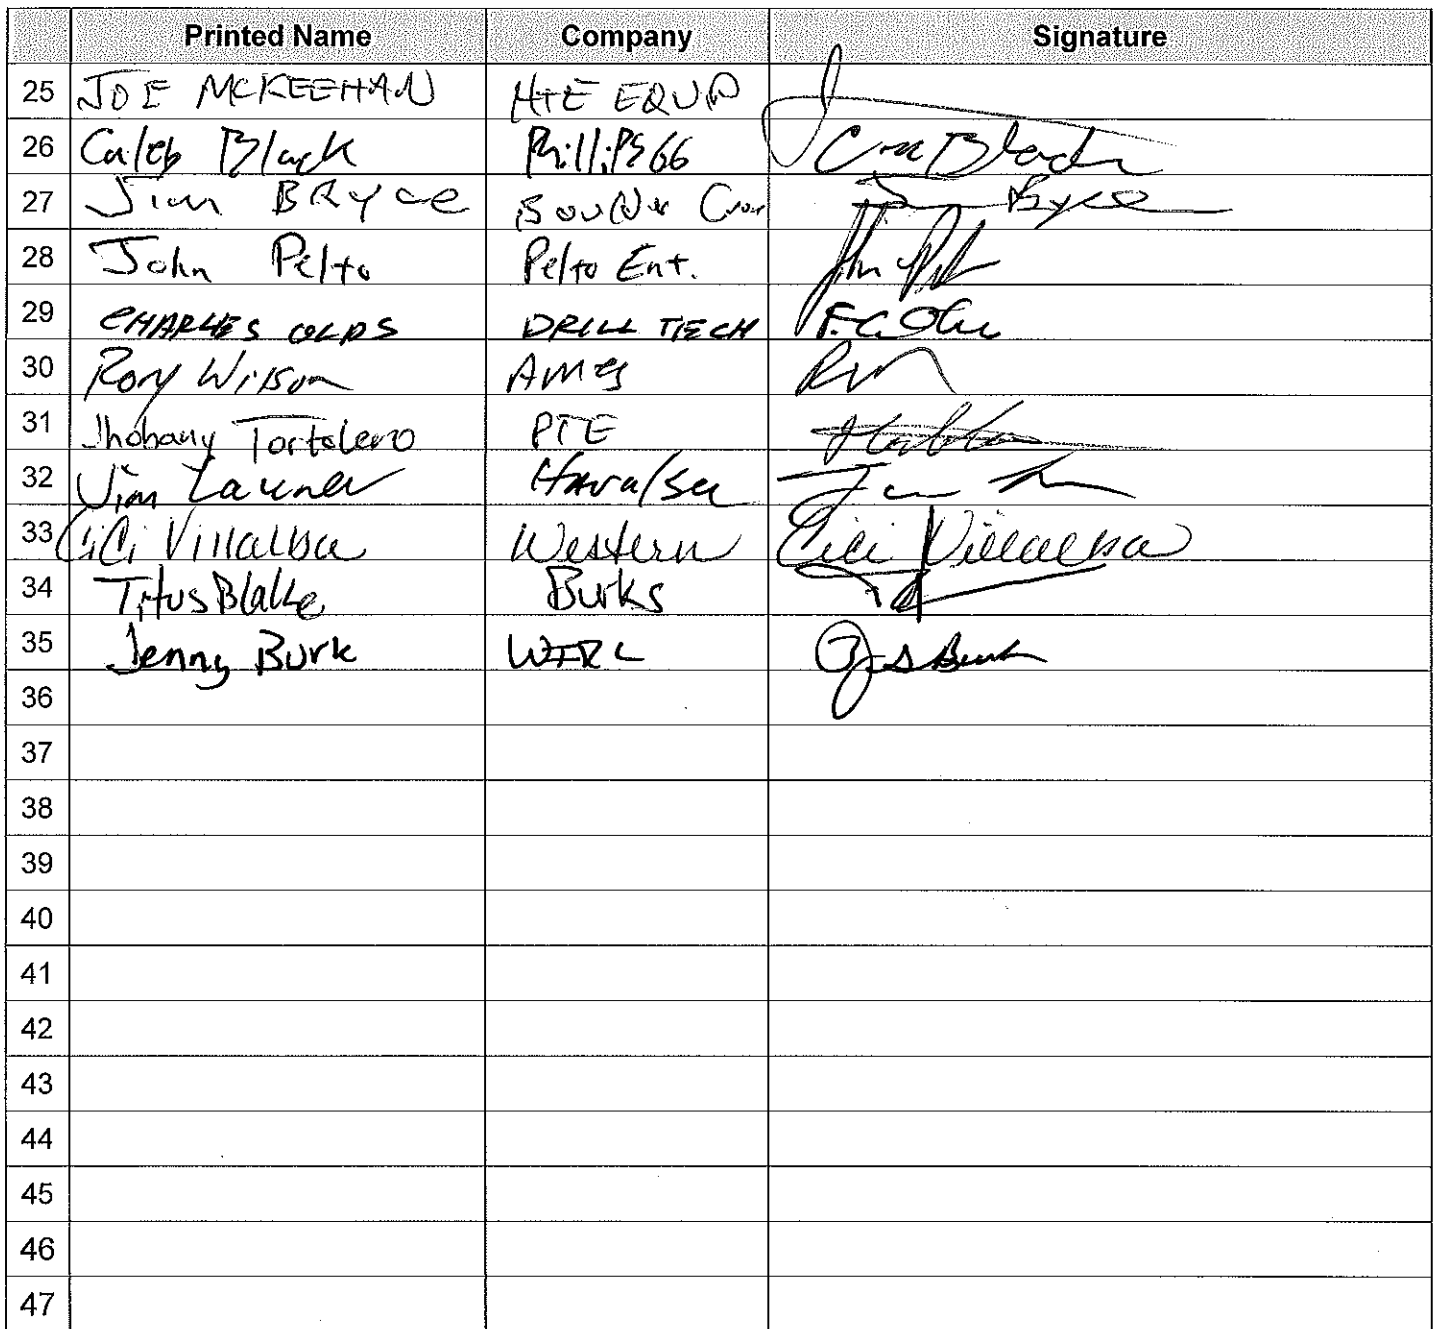 Printed Name Company Signature
25 JOE MCKEEHAN HTE EQUP
26 Caleb Black Phillips 66
27 Jim BRyce
28 John Pelto Pelto Ent.
29 CHARLES OLDS DRILL TECH F.C. Olds
30 Rory Wilson Ames
31 Jhobany Tortolero PTE
32 Jim
33 CiCi Villalba Western Cici Villalba
34 Titus Blake Burks
35 Jenny Burk WIRC
36
37
38
39
40
41
42
43
44
45
46
47